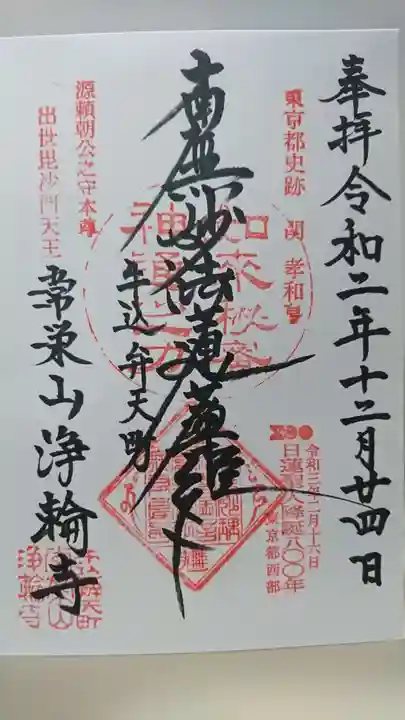 奉拝 令和二年十二月廿四日
東京都史跡 関 孝和墓
南無妙法蓮華経
如来秘密
神通之力
牛込弁天町
源頼朝公之守本尊
出世毘沙門天王
常栄山 浄輪寺
令和三年二月十六日
日蓮聖人降誕八〇〇年
東京都西部
浄輪寺